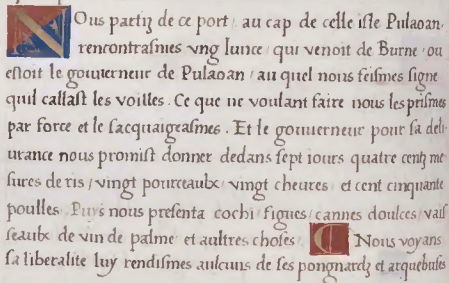 Nous partiz de ce port / au cap de celle isle Pulaoan.
rencontrasmes vng Iunce / qui venoit de Burne / ou
estoit le gouuerneur de Pulaoan / au quel nous feismes signe
quil callast les voilles. Ce que ne voulant faire nous les prismes
par force et le sacquaigeasmes. Et le gouuerneur pour sa deli
urance nous promist donner dedans sept iours quatre centz me
sures de ris / vingt pourceaulx / vingt cheures / et cent cinquante
poulles. Puys nous presenta cochi / figues / cannes doulces / vais
seaulx de vin de palme et aultres choses / C Nous voyans
sa liberalite luy rendismes aulcuns de ses pongnardz et arquebuses